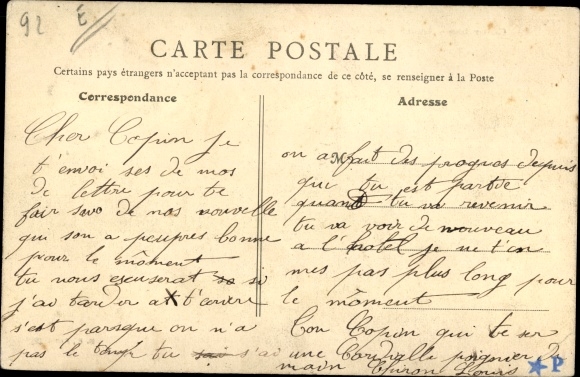 92 É
CARTE POSTALE
Certains pays étrangers n'acceptant pas la correspondance de ce côté, se renseigner à la Poste
Correspondance
Cher Copin je
t'envoi ses de mos
de lettre pour te
fair savo de nos nouvelle
qui son a peupres bonne
pour le môment
tu nous excuserat si
j'ai tarder a t'envere
s'est parsque on n'a
pas le temp tu s'ai
Adresse
on a fait des progres depuis
que tu est partie
quand tu va revenir
tu va voir de nouveau
a l'hotel je ne t'en
mes pas plus long pour
le môment
Ton Copin qui te ser
une Cordialle poignier de
main Louis
P